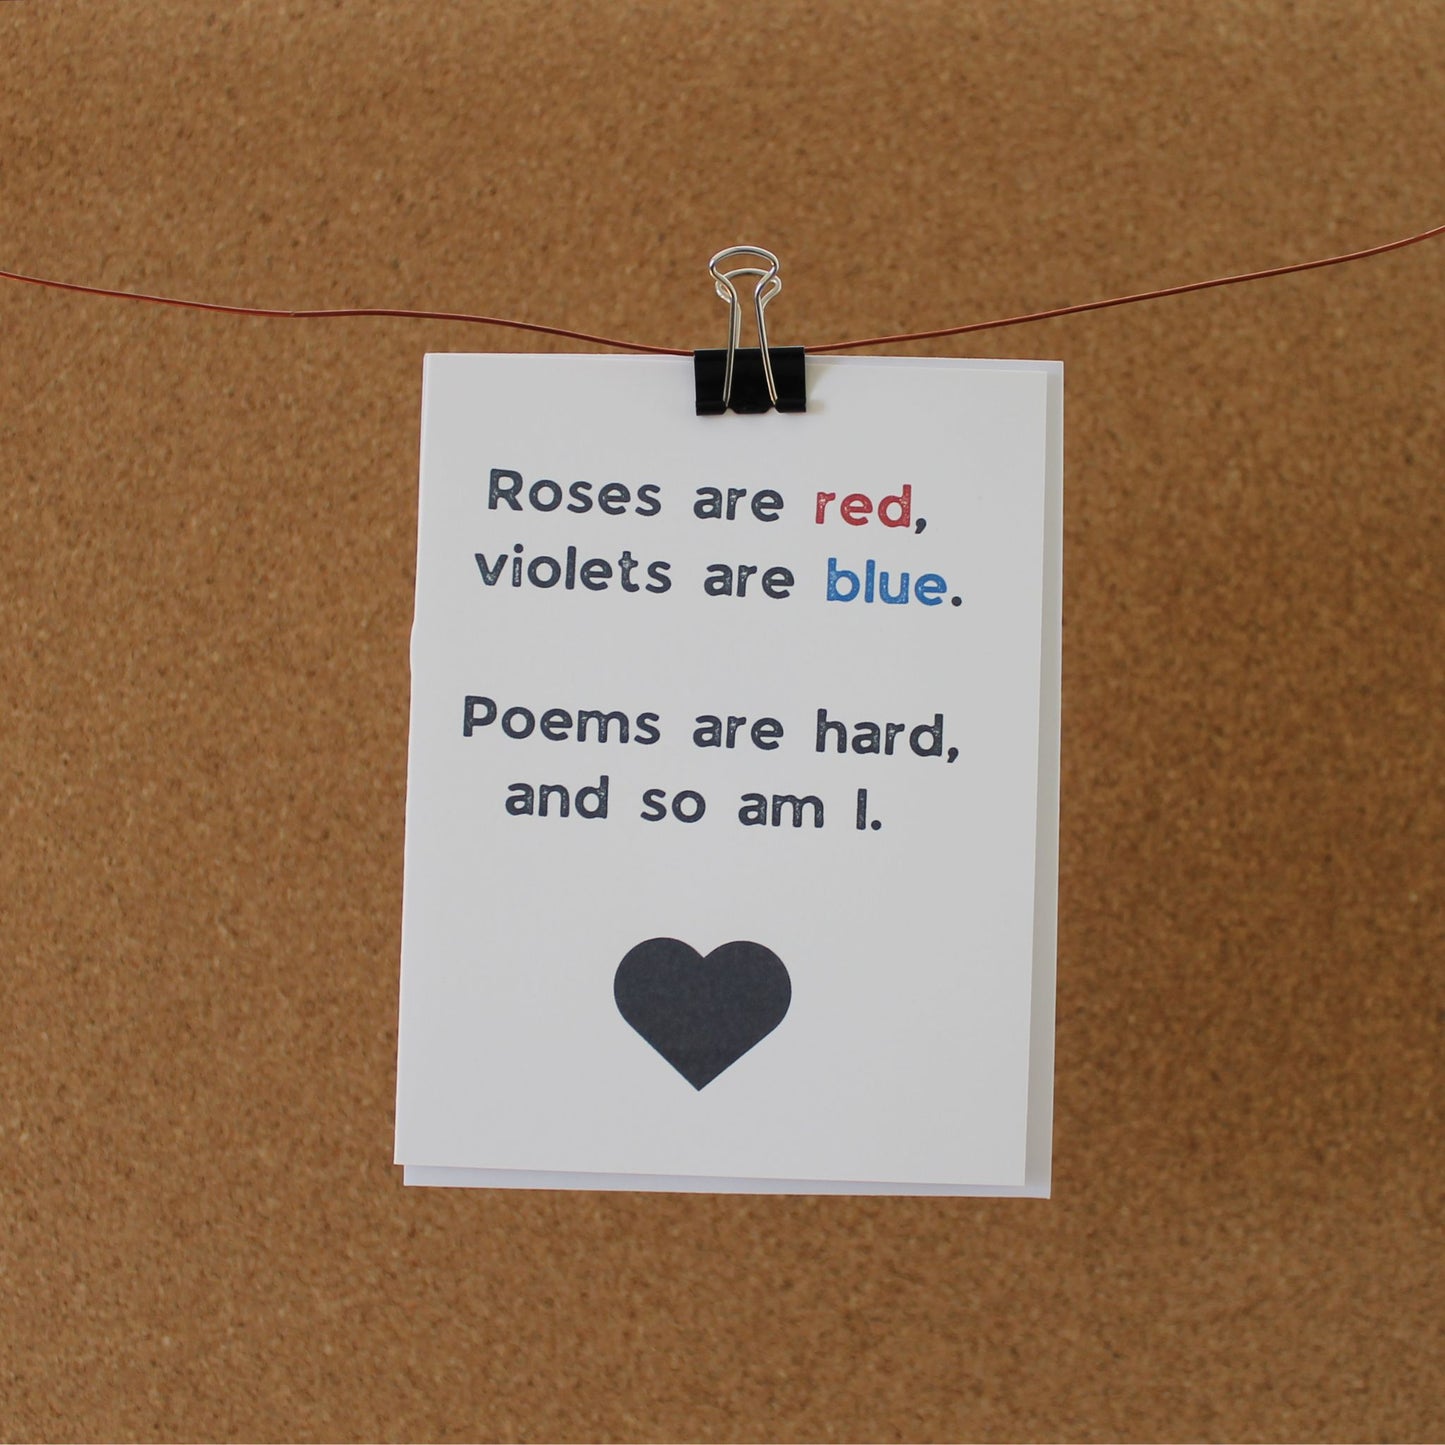 Roses are red,
violets are blue.
Poems are hard,
and so am I.